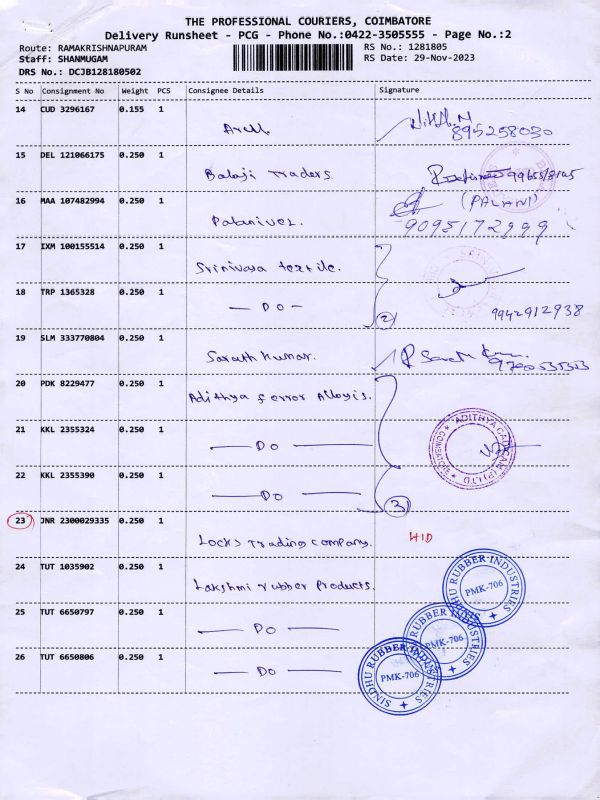 THE PROFESSIONAL COURIERS, COIMBATORE
Delivery Runsheet - PCG - Phone No.:0422-3505555 - Page No.:2
Route: RAMAKRISHNAPURAM RS No.: 1281805
Staff: SHANMUGAM RS Date: 29-Nov-2023
DRS No.: DCJB128180502
S No Consignment No Weight PCS Consignee Details Signature
14 CUD 3296167 0.155 1
895258030
15 DEL 121066175 0.250 1
Balaji Traders
16 MAA 107482994 0.250 1 (PALANI)
Palanivel. 9095172999
17 IXM 100155514 0.250 1
Srinivasa textile.
18 TRP 1365328 0.250 1
— Do — 2 9942912938
19 SLM 333770804 0.250 1
Sarath Kumar.
20 PDK 8229477 0.250 1 Adithya ferror Alloyis.
21 KKL 2355324 0.250 1
— Do —
22 KKL 2355390 0.250 1
— Do — 3
23 JNR 2300029335 0.250 1
Locks Trading company. HID
24 TUT 1035902 0.250 1
Lakshmi rubber Products.
25 TUT 6650797 0.250 1
— Do —
26 TUT 6650806 0.250 1
— Do —
ADITHYA CADCAM (P) LTD
COIMBATORE
SINDHU RUBBER INDUSTRIES
PMK-706
SINDHU RUBBER INDUSTRIES
PMK-706
SINDHU RUBBER INDUSTRIES
PMK-706